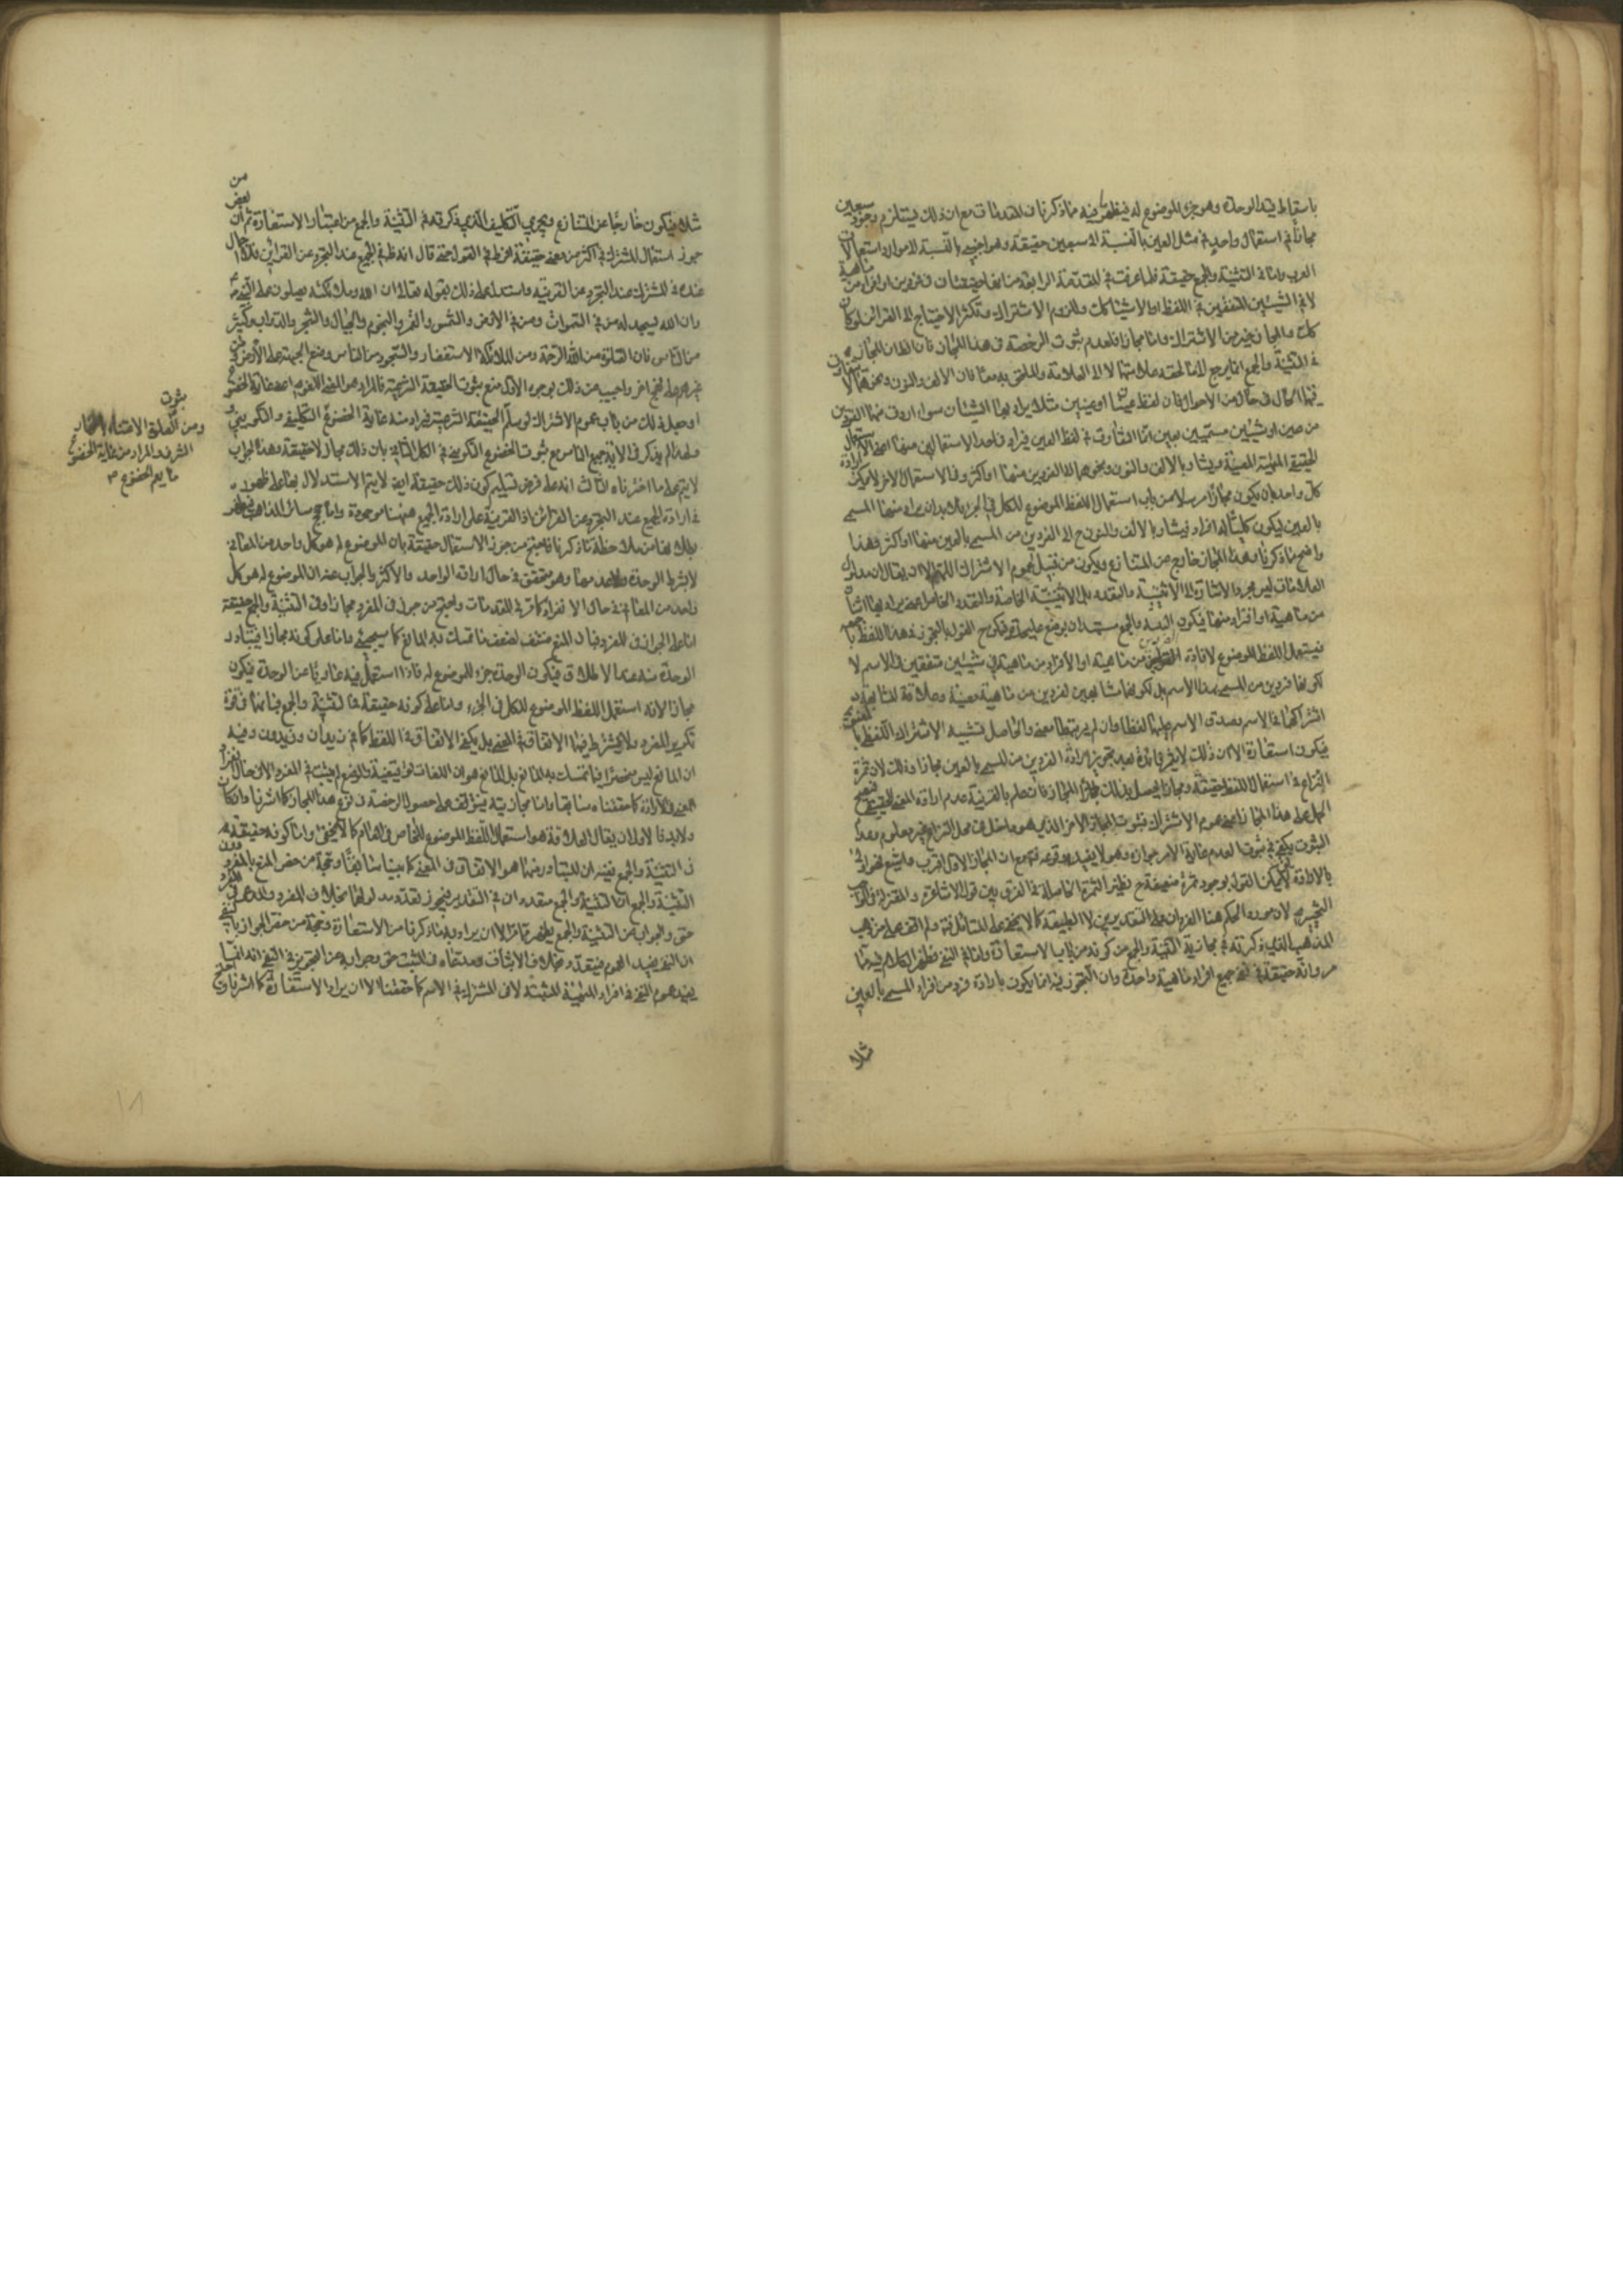 باسقاط قيد الوحدة وهو جزء الموضوع له فيظهر فيه مما ذكرنا في المقدمات مع ان ذلك يستلزم وجود سبعين
مجازا في استعمال واحد في مثل العين بالنسبة الى سبعين حقيقة وهو اجنبي بالنسبة الى موارد استعمالات
العرب واما في التثنية والجمع حقيقة فلما عرفت في المقدمة الرابعة من انهما حقيقتان في فردين او افراد من ماهية
لا في الشيئين المتفقين في اللفظ او الاشياء كذلك وللزوم الاشتراك وتكثر الاحتياج الى القرائن لو كان
كذلك والمجاز خير من الاشتراك واما مجازا فلعدم ثبوت الرخصة في هذا المجاز فان الظاهر ان المجاز
في التثنية والجمع انما يرجع الى ما لحقه علامتهما لا الى العلامة والملحق به معا فان الالف والنون ونحوهما لا يتفاوت
فيهما الحال في حال من الاحوال فان لفظ عينان او عينين مثلا يراد بهما الشيئان سواء اردت منهما الفردين
من عين او شيئين مسميين بعين انما التفاوت في لفظ العين فيراد في احد الاستعمالين منها اعني الاستعمال
الحقيقي الماهية المعينة ويشار بالالف والنون ونحوهما الى الفردين منها او اكثر وفي الاستعمال الاخر لا يمكن ارادة
كل واحد بان يكون مجازا مرسلا من باب استعمال اللفظ الموضوع للكل في الجزء بل لا بد ان يراد منها المسمى
بالعين ليكون كليا له افراد فيشار بالالف والنون ح الى الفردين من المسمى بالعين منها او اكثر وهذا
واضح مما ذكرنا وهذا المجاز خارج عن المتنازع ويكون من قبيل عموم الاشتراك اللهم الا ان يقال ان مدلول
العلامات ليس مجرد الاشارة الى الاثنينية والتعدد بل الى الاثنينية الخاصة والتعدد الخاص اعني يراد بهما اثنان
من ماهية او افراد منها فيكون التثنية والجمع
فيستعمل اللفظ الموضوع لافادة الفردين من ماهية او الافراد من ماهية في شيئين متفقين في الاسم لا
لكونهما فردين من المسمى بهذا الاسم بل لكونهما مشابهين لفردين من ماهية معينة وعلاقة المشابهة
اشتراكهما في الاسم وصدق الاسم عليهما لفظا وان لم يرتبطا معنى والحاصل تشبيه الاشتراك اللفظي بالمعنوي
فيكون استعارة الا ان ذلك لا يثمر فائدة بعد تجويز ارادة الفردين من المسمى بالعين مجازا وذلك لان ثمرة
النزاع في استعمال اللفظ حقيقة ومجازا يحصل بذلك المجاز فان علم بالقرينة عدم ارادة المعنى الحقيقي فيصح
الحمل على هذا المجاز اعني عموم الاشتراك فثبوت المجاز الاخر الذي هو داخل في محل النزاع غير معلوم وعدم
الثبوت يكفي في ثبوت العدم غاية الامر جوازه وهو لا يفيد وقوعه فيه مع ان المجاز الاول اقرب واشيع فهو اولى
بالارادة لا يمكن القول بوجود ثمرة ضعيفة ح نظير الثمرة الحاصلة في الفرق بين قول الاشاعرة والمعتزلة في الواجب
التخييري لان مورد الحكم هنا الفردان على التقديرين لا الطبيعة كما لا يخفى على المتأمل فيه ولم اقف على من ذهب
المذهب الذي ذكرته في مجازية التثنية والجمع من كونه من باب الاستعارة واما في النفي فظهر الكلام فيه مما
مر وانه حقيقة في نفي جميع افراد ماهية واحدة وان التجوز فيه انما يكون بارادة فرد من افراد المسمى بالعين
مثلا
مثلا فيكون خارجا عن المتنازع ويجري التكليف الذي ذكرته في التثنية والجمع من اعتبار الاستعارة ثم ان من بعض
جوز استعمال المشترك في اكثر من معنى حقيقة فرط في القول حتى قال انه ظاهر في الجميع عند التجرد عن القراين فلا اجمال
عنده في المشترك عند التجرد عن القرينة واستدل على ذلك بقوله تعالى ان الله وملائكته يصلون على النبي
وان الله يسجد له من في السموات ومن في الارض والشمس والقمر والنجوم والجبال والشجر والدواب وكثير
من الناس فان الصلوة من الله الرحمة ومن الملائكة الاستغفار والسجود من الناس وضع الجبهة على الارض ومن
غيرهم على نحو اخر واجيب عن ذلك بوجوه الاول منع ثبوت الحقيقة الشرعية فالمراد هو المعنى اللغوي اعني غاية الخضوع
او جعل ذلك من باب عموم الاشتراك لو سلم الحقيقة الشرعية فيراد منه غاية الخضوع التكليفي والتكويني
ولهذا لم يذكر في الاية جميع الناس مع ثبوت الخضوع التكويني في الكل الثاني بان ذلك مجاز لا حقيقة وهذا الجواب
لا يتم على ما اخترناه الثالث انه على فرض تسليم كون ذلك حقيقة ايضا لا يتم الاستدلال بهما على ظهوره
في ارادة الجميع عند التجرد عن القرائن اذ القرينة على ارادة الجميع ههنا موجودة واما حجج سائر المذاهب فيظهر
بطلانها من ملاحظة ما ذكرنا فاحتج من جوز الاستعمال حقيقة بان الموضوع له هو كل واحد من المعاني
لا بشرط الوحدة ولا عدمها وهو متحقق في حال ارادة الواحد والاكثر والجواب عنه ان الموضوع له هو كل
واحد من المعاني في حال الانفراد كما مر في المقدمات واحتج من جوز في المفرد مجازا وفي التثنية والجمع حقيقة
اما على الجواز في المفرد فبان المنع منتف لضعف ما تمسك به المانع كما سيجيء واما على كونه مجازا فبتبادر
الوحدة منه عند الاطلاق فيكون الوحدة جزء للموضوع له فاذا استعمل فيه عاريا عن الوحدة فيكون
مجازا لانه استعمل اللفظ الموضوع للكل في الجزء واما على كونه حقيقة في التثنية والجمع فبانهما في قوة
تكرير المفرد ولا يشترط فيهما الاتفاق في المعنى بل يكفي الاتفاق في اللفظ كما في زيدان وزيدون وفيه
ان المانع ليس منحصرا فيما تمسك به المانع بل المانع هو ان اللغات توقيفية والوضع لم يثبت في المفرد الا في حال انفراد
المعنى في الارادة كما حققناه سابقا واما مجازيته فيتوقف على حصول الرخصة في نوع هذا المجاز كما اشرنا وان كان
ولا بد فالاولى ان يقال العلاقة هو استعمال اللفظ الموضوع للخاص في العام كما لا يخفى واما كونه حقيقة
في التثنية والجمع ففيه ان المتبادر منهما هو الاتفاق في المعنى كما بينا سابقا وحجة من خص المنع بالمفرد دون
التثنية والجمع ان التثنية والجمع متعددان في التقدير فيجوز تعدد مدلولهما بخلاف المفرد
حق والجواب عن التثنية والجمع يظهر مما مر الا ان يراد به ما ذكرنا من الاستعارة وحجة من خص الجواز بالنفي
ان النفي يفيد العموم فيتعدد بخلاف الاثبات ومدعاه في المثبت حق وجوابه عن التجويز في النفي ان النفي انما
يفيد عموم النفي في افراد الماهية المثبتة لا في المشترك في الاسم كما حققنا الا ان يراد الاستعارة كما اشرنا
ثبوت
الشرف والمراد من غاية الخضوع
ما يعم الخضوع